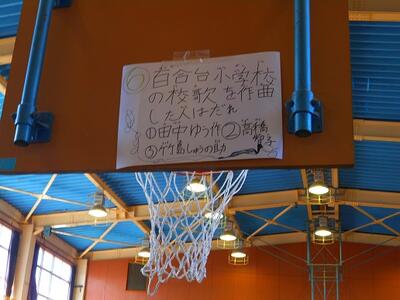 ⑥百合台小学校
の校歌を作曲
した人はだれ
①田中ゆう作②高橋
③竹島しゅうの助